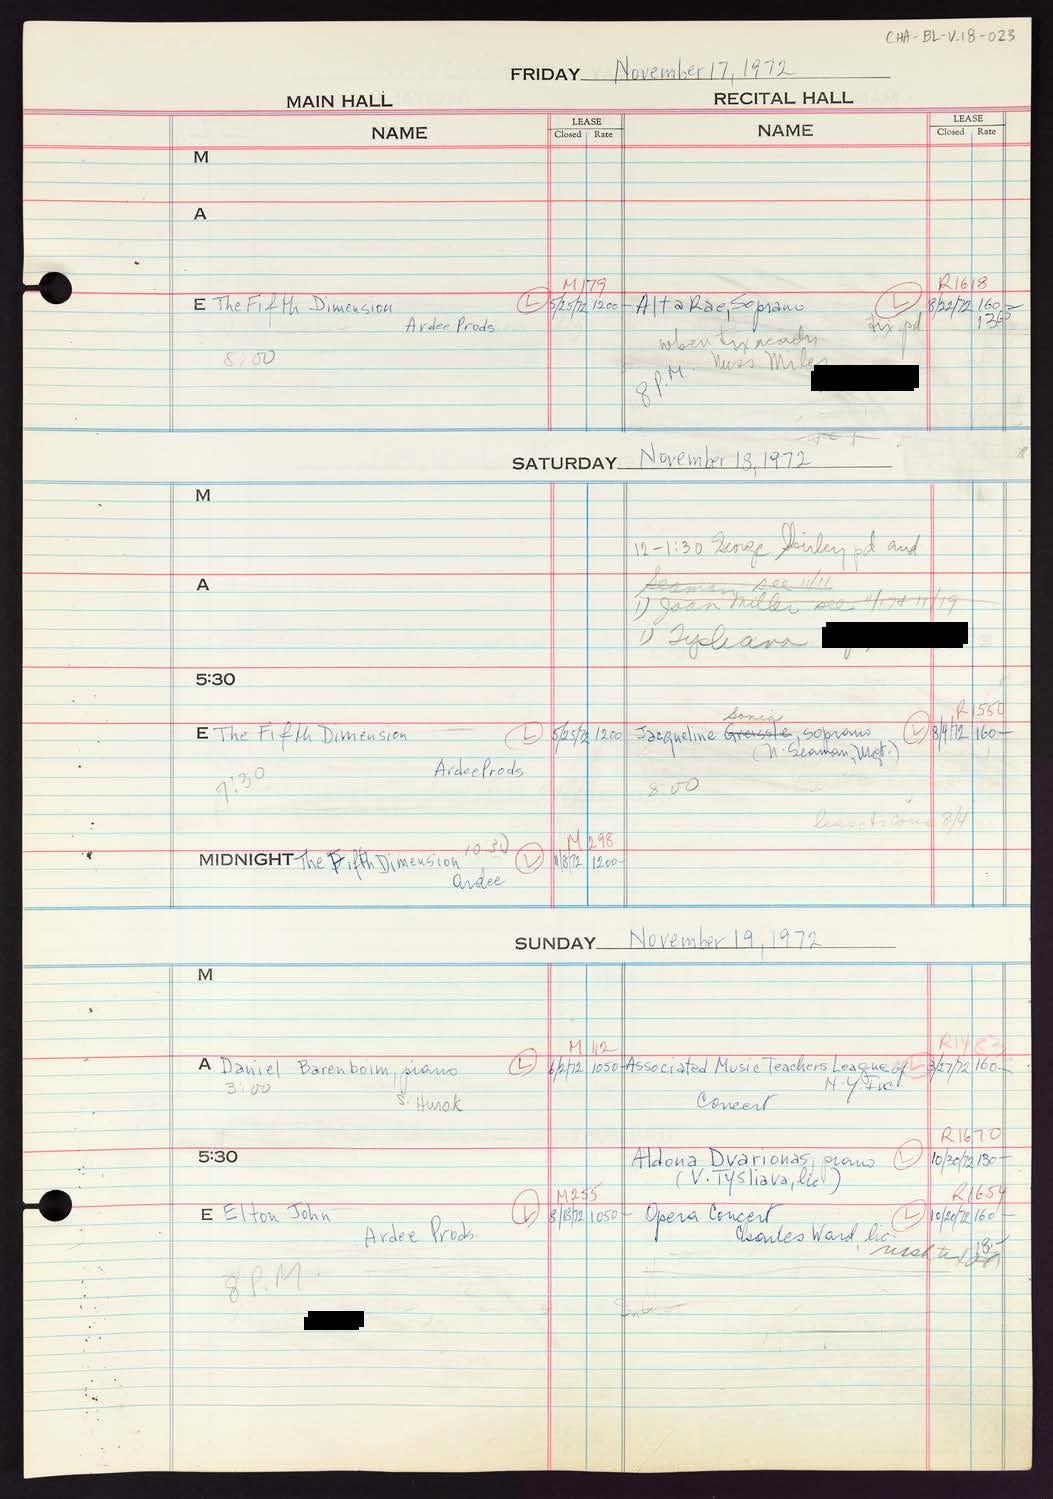 CHA-BL-V.18-023
FRIDAY November 17, 1972
MAIN HALL
RECITAL HALL
NAME
LEASE
Closed Rate
NAME
LEASE
Closed Rate
M
A
M179
R1618
E The Fifth Dimension L 5/25/72 1200-
Alta Rae, Soprano L 8/22/72 160-
Ardee Prods
tix pd
8:00
when tix ready
Miss Miles
8 P.M.
SATURDAY November 18, 1972
M
12-1:30 George Shirley pd and
A
Seaman see 11/11
1) Joan Miller see 11/17 + 11/19
1) Tysliava
5:30
R1550
Sonia
E The Fifth Dimension L 5/25/72 1200
Jacqueline Greissle, soprano L 8/4/72 160-
(N. Seaman, Mgt.)
Ardee Prods
7:30
8:00
8/4
M298
MIDNIGHT The Fifth Dimension 10:30 L 11/8/72 1200-
Ardee
SUNDAY November 19, 1972
M
M112
R1483
A Daniel Barenboim, piano L 6/2/72 1050-
Associated Music Teachers League of L 3/27/72 160-
N.Y. Inc
3:00
S. Hurok
Concert
R1670
5:30
Aldona Dvarionas, piano L 10/30/72 130-
(V. Tysliava, lic)
M255
R1654
E Elton John L 8/18/72 1050-
Opera Concert L 10/20/72 160-
Ardee Prods.
Charles Ward, lic.
rush tix
18-
8 P.M.